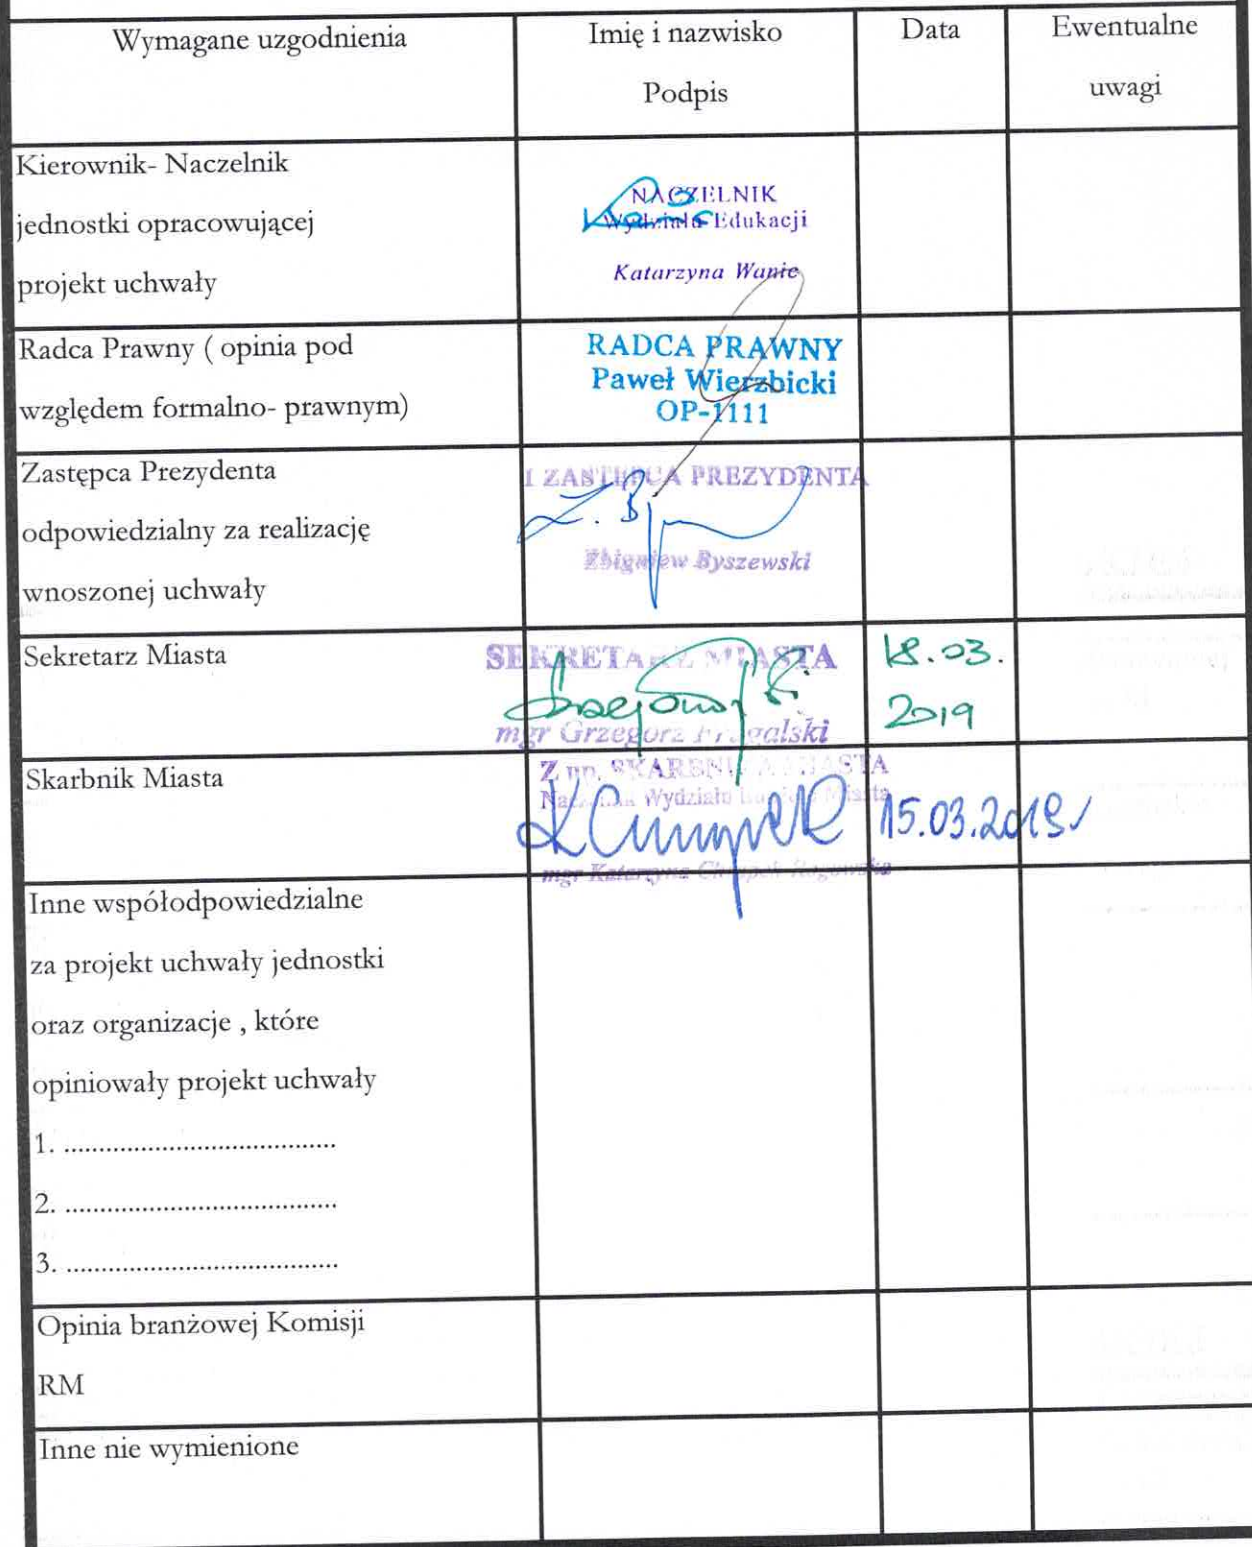 Wymagane uzgodnienia
Imię i nazwisko
Podpis
Data
Ewentualne
uwagi
Kierownik- Naczelnik
jednostki opracowującej
projekt uchwały
NACZELNIK
Wydziału Edukacji
Katarzyna Wanie
Radca Prawny ( opinia pod
względem formalno- prawnym)
RADCA PRAWNY
Paweł Wierzbicki
OP-1111
Zastępca Prezydenta
odpowiedzialny za realizację
wnoszonej uchwały
I ZASTĘPCA PREZYDENTA
Z. By
Zbigniew Byszewski
Sekretarz Miasta
SEKRETARZ MIASTA
mgr Grzegorz
18.03.
2019
Skarbnik Miasta
Z up. SKARBNIKA MIASTA
Naczelnik Wydziału Miasta
mgr Katarzyna
15.03.2019
Inne współodpowiedzialne
za projekt uchwały jednostki
oraz organizacje , które
opiniowały projekt uchwały
1. .......................................
2. .......................................
3. .......................................
Opinia branżowej Komisji
RM
Inne nie wymienione